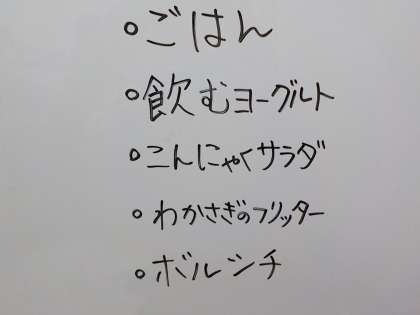 ○ごはん
○飲むヨーグルト
○こんにゃくサラダ
○わかさぎのフリッター
○ボルシチ